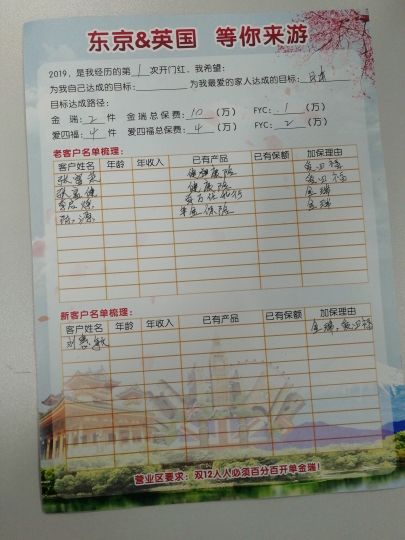 东京&英国 等你来游
2019，是我经历的第 1 次开门红，我希望：
为我自己达成的目标： 为我最爱的家人达成的目标：
目标达成路径：
金 瑞： 2 件 金瑞总保费： 10 （万） FYC： 1 （万）
爱四福： 4 件 爱四福总保费： 4 （万） FYC： 2 （万）
老客户名单梳理：
客户姓名 年龄 年收入 已有产品 已有保额 加保理由
健康险
健康险
金瑞
年金保险 金瑞
新客户名单梳理：
客户姓名 年龄 年收入 已有产品 已有保额 加保理由
刘 敏 金瑞、
营业区要求：双12人人必须百分百开单金瑞！